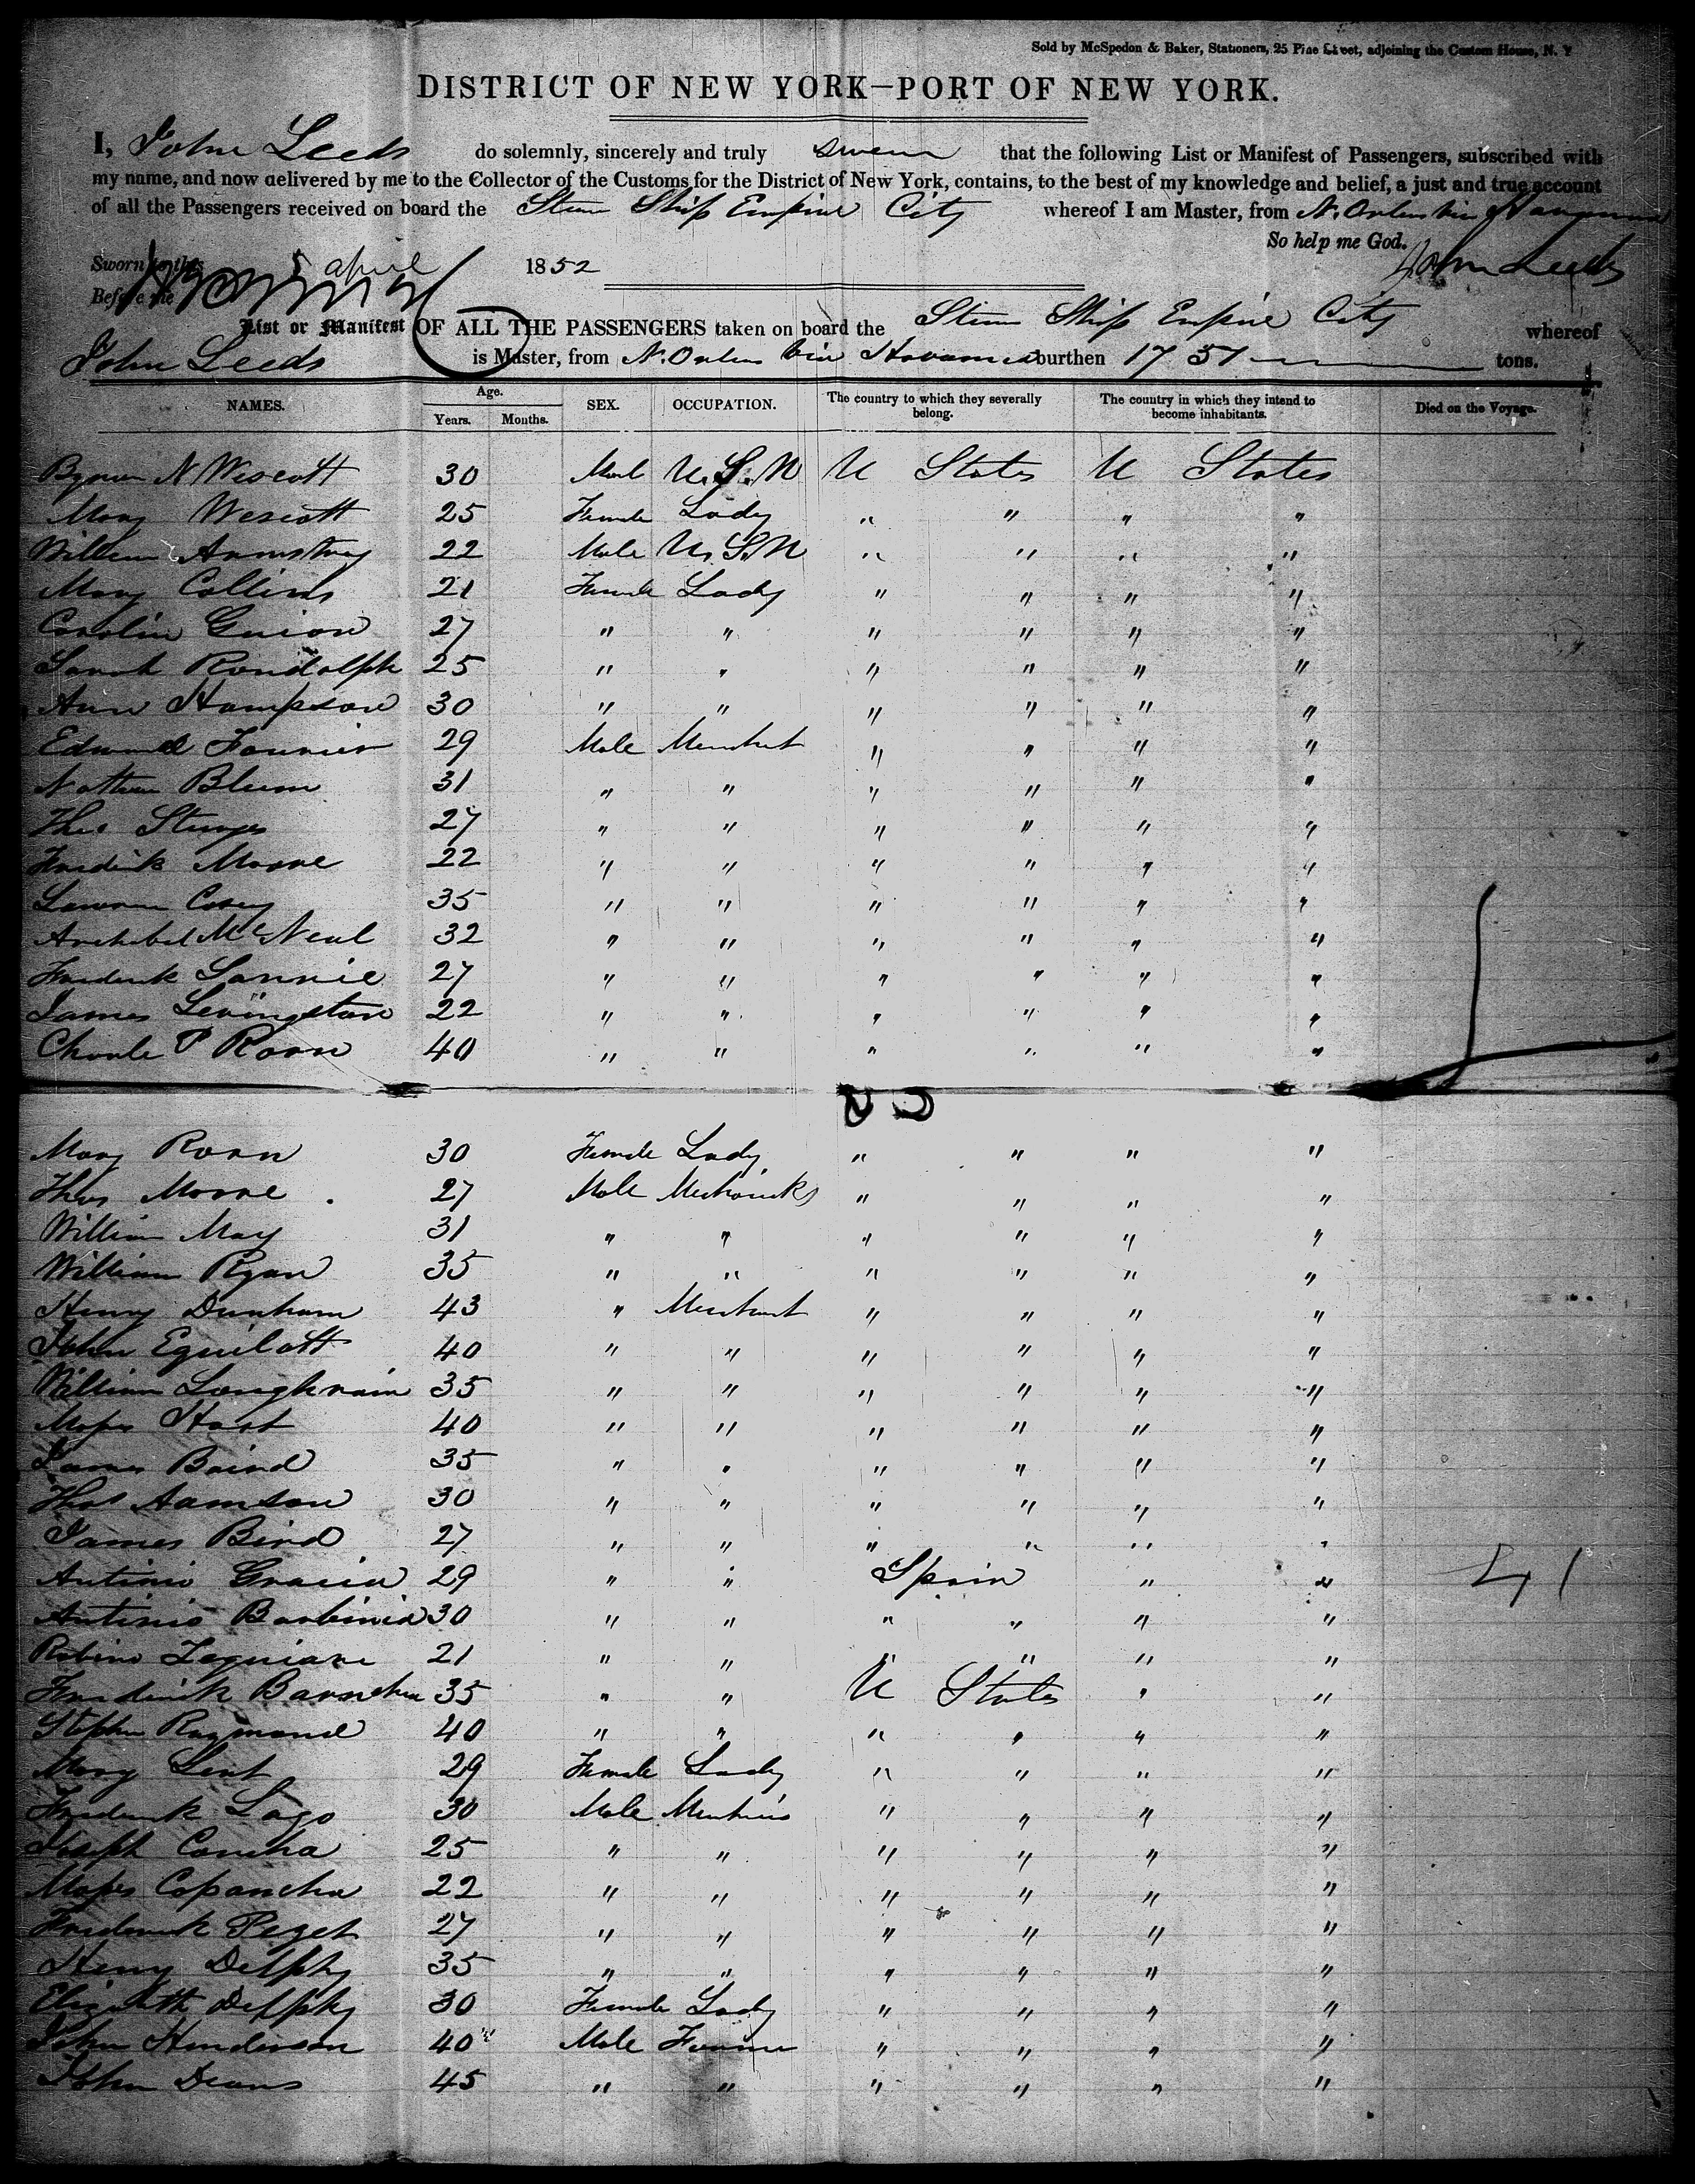 Sold by McSpedon & Baker, Stationers, 25 Pine Street, adjoining the Custom House, N. Y
DISTRICT OF NEW YORK—PORT OF NEW YORK.
I, John Leeds do solemnly, sincerely and truly swear that the following List or Manifest of Passengers, subscribed with
my name, and now delivered by me to the Collector of the Customs for the District of New York, contains, to the best of my knowledge and belief, a just and true account
of all the Passengers received on board the Steam Ship Empire City whereof I am Master, from N. Orleans via Havanna
So help me God.
Sworn to this 5 april 1852 John Leeds
Before me
List or Manifest OF ALL THE PASSENGERS taken on board the Steam Ship Empire City whereof
John Leeds is Master, from N. Orleans via Havanna burthen 1751 tons.
NAMES. Age. Years. Months. SEX. OCCUPATION. The country to which they severally belong. The country in which they intend to become inhabitants. Died on the Voyage.
Byron N Wescott 30 Male U.S.N U States U States
Mary Wescott 25 Female Lady " " " "
William Armstrong 22 Male U.S.N " " " "
Mary Collins 21 Female Lady " " " "
Caroline Guion 27 " " " " " "
Sarah Randolph 25 " " " " " "
Ann Hampson 30 " " " " " "
Edward Fournier 29 Male Merchant " " " "
Nathan Blum 31 " " " " " "
Theo Sturges 27 " " " " " "
Fredrick Moore 22 " " " " " "
Lawrence Casey 35 " " " " " "
Archibel McNeal 32 " " " " " "
Frederick Lannie 27 " " " " " "
James Levingston 22 " " " " " "
Charle P Roan 40 " " " " " "
Mary Roan 30 Female Lady " " " "
Thos Moore 27 Male Mechanicks " " " "
William May 31 " " " " " "
William Ryan 35 " " " " " "
Henry Dunham 43 " Merchant " " " "
John Equilott 40 " " " " " "
William Loughrain 35 " " " " " "
Moses Hast 40 " " " " " "
James Baird 35 " " " " " "
Thos Aamson 30 " " " " " "
James Bird 27 " " " " " "
Antinio Gracia 29 " " Spain " " 41
Antinio Barbinia 30 " " " " " "
Robino 21 " " " " " "
Frederick 35 " " U States " "
Stephen Raymond 40 " " " " " "
Mary Lent 29 Female Lady " " " "
Frederick Lago 30 Male " " " "
Joseph Concha 25 " " " " " "
Moses Copancha 22 " " " " " "
Frederick Pezet 27 " " " " " "
Henry Delphy 35 " " " " " "
Elizabeth Delphy 30 Female Lady " " " "
John Henderson 40 Male Farmer " " " "
John Deans 45 " " " " " "